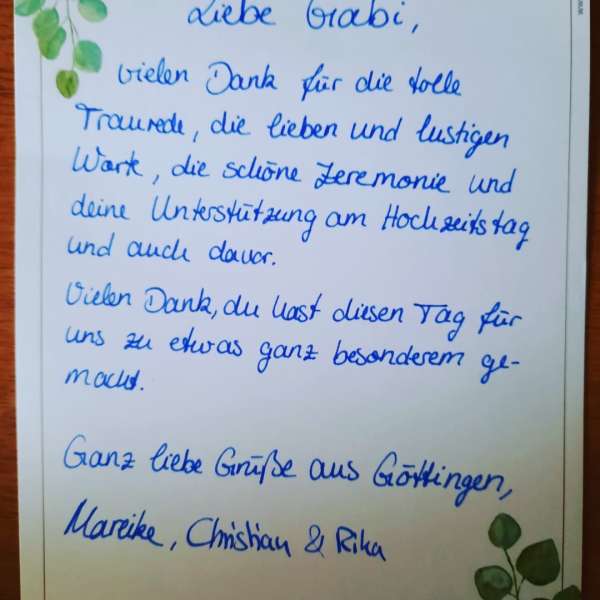 Liebe Gabi,
vielen Dank für die tolle
Traurede, die lieben und lustigen
Worte, die schöne Zeremonie und
deine Unterstützung am Hochzeitstag
und auch davor.
Vielen Dank, du hast diesen Tag für
uns zu etwas ganz besonderem ge-
macht.
Ganz liebe Grüße aus Göttingen,
Mareike, Christian & Rika